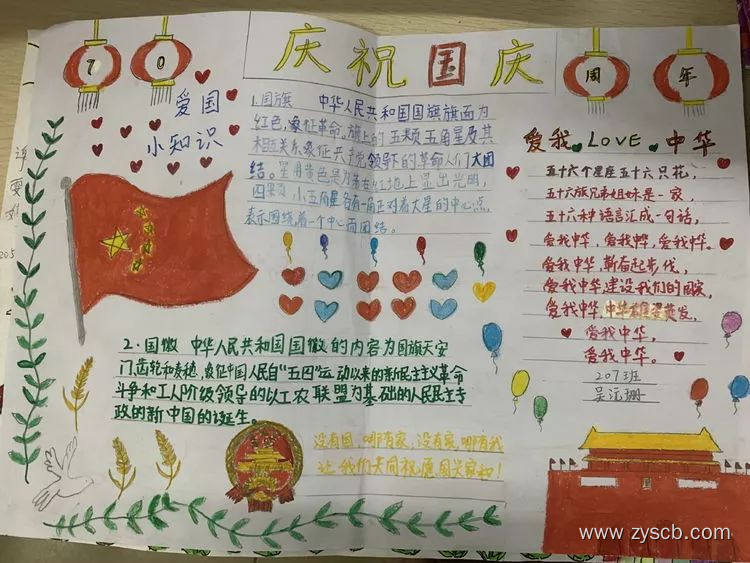 庆祝国庆
70
周年
爱国
小知识
1.国旗 中华人民共和国国旗旗面为
红色,象征革命,旗上的五颗五角星及其
相互关系象征共产党领导下的革命人们大团
结。星用黄色是为着在红地上显出光明,
四颗小五角星各有一角正对着大星的中心点,
表示围绕着一个中心而团结。
爱我 LOVE 中华
五十六个星座五十六只花,
五十六族兄弟姐妹是一家,
五十六种语言汇成一句话,
爱我中华,爱我中华,爱我中华。
爱我中华,新奋起步伐,
爱我中华建设我们的国家,
爱我中华,中华英发,
爱我中华,
爱我中华。
207班
吴沅珊
2.国徽 中华人民共和国国徽的内容为国旗天安
门,齿轮和麦穗,象征中国人民自“五四”运动以来的新民主主义革命
斗争和工人阶级领导的以工农联盟为基础的人民民主专
政的新中国的诞生。
没有国,哪有家,没有家,哪有我
让我们共同祝愿国家
www.zyscb.com